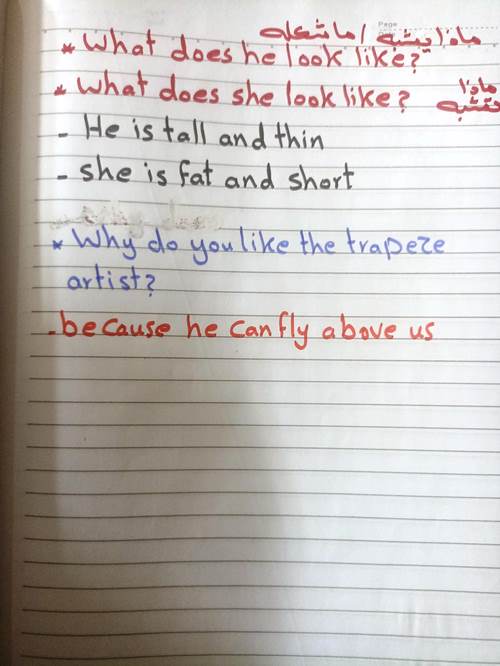 Page
ماذا يشبه / ما شكله
* What does he look like?
* What does she look like? ماذا
تشبه
- He is tall and thin
- she is fat and short
* Why do you like the trapeze
artist?
-because he can fly above us